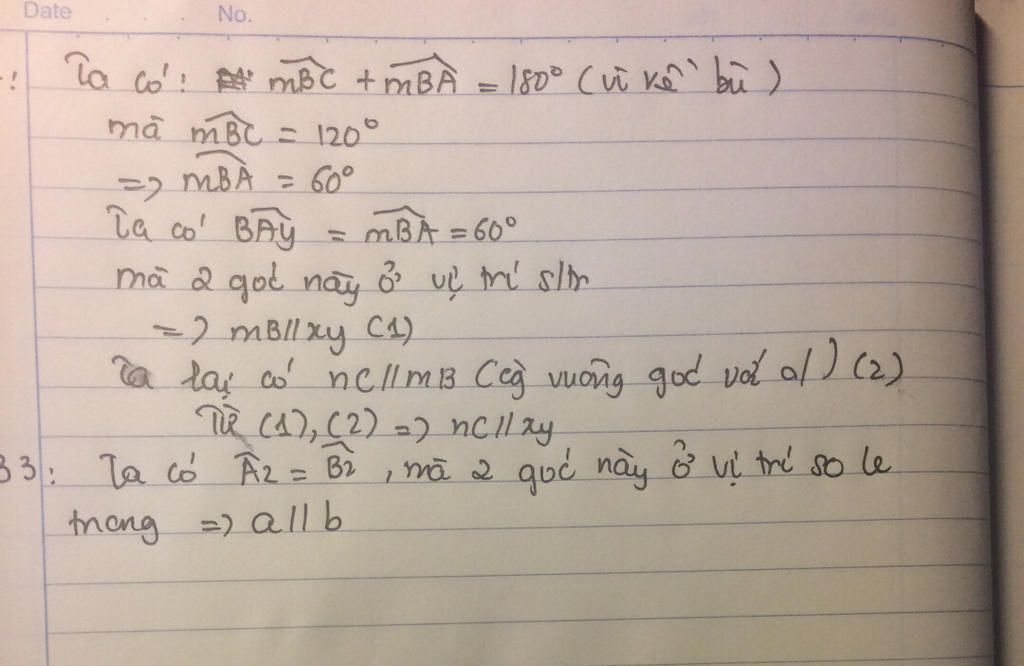 Date . . No.
: Ta có: mBC + mBA = 180° (vì kề bù)
mà mBC = 120°
=> mBA = 60°
Ta có BAy = mBA = 60°
mà 2 góc này ở vị trí s/tr
=> mB//xy (1)
Ta lại có nC//mB (cg vuông góc với d) (2)
Từ (1), (2) => nC//xy
B3: Ta có Â2 = B̂2, mà 2 góc này ở vị trí so le
trong => a//b